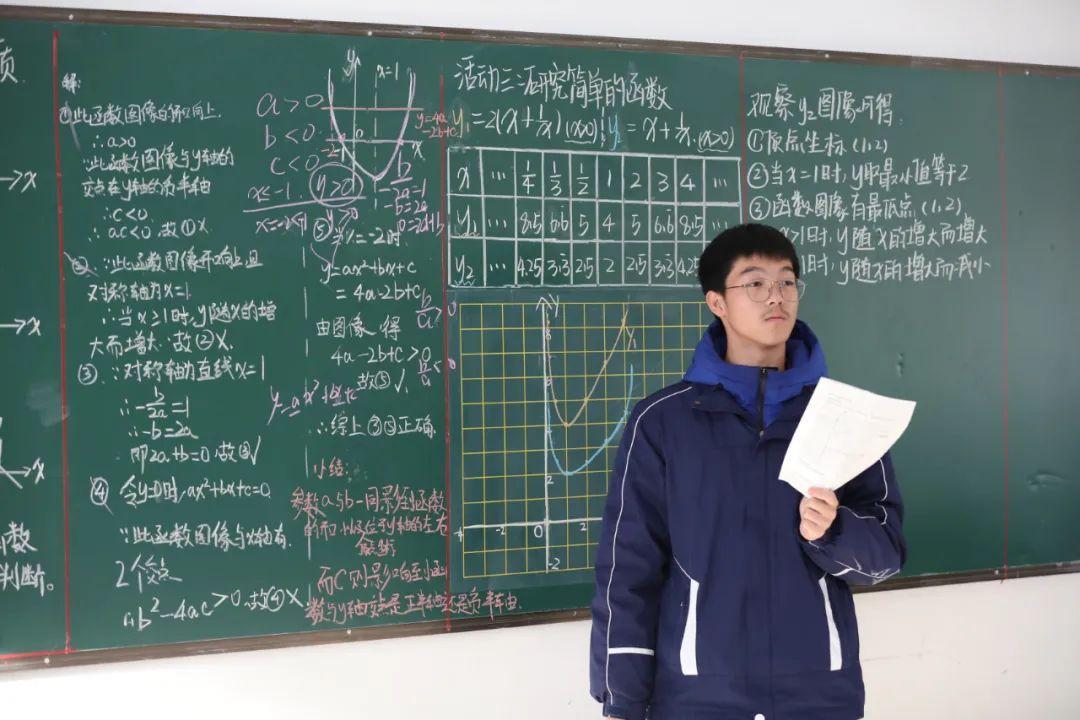 质
→x
→x
x
函数
判断。
解:
①此函数图像的开口向上.
∴a>0
∵此函数图像与y轴的
交点在y轴的负半轴
∴c<0
∴ac<0.故①X.
②∵此函数图像开口向上且
对称轴为x=1.
∴当x≥1时,y随x的增
大而增大.故②X.
③∵对称轴为直线x=1
∴-b/2a=1
∴-b=2a
即2a+b=0.故③√
④令y=0时,ax²+bx+c=0.
∵此函数图像与x轴有
2个交点
∴b²-4ac>0.故④X
a>0
b<0
c<0
x=-1
y>0
y
x=1
x
-2
-1
y=4a
-2b+c
-b/2a=1
-b=2a
⑤
y>0
当x=-2时.
y=ax²+bx+c
=4a-2b+c
由图像得
4a-2b+c>0
故⑤√.
b/a>0
b/a<0
y=ax²+bx+c
∴综上③⑤正确.
小结:
参数a与b一同影响函数
而C则影响至函
数与y轴交点是正半轴还是负半轴.
活动三:研究简单的函数
y₁=2(x+1/x)(x>0);y₂=x+1/x.(x>0)
x … 1/4 1/3 1/2 1 2 3 4 …
y₁ … 8.5 6.6 5 4 5 6.6 8.5 …
y₂ … 4.25 3.3 2.5 2 2.5 3.3 4.25
y
y₁
2
-4 -2 0 2
-2
观察y₂图像可得.
①顶点坐标(1,2)
②当x=1时,y取最小值等于2
③函数图像有最低点.(1,2)
x>1时,y随x的增大而增大
1时,y随x的增大而减小